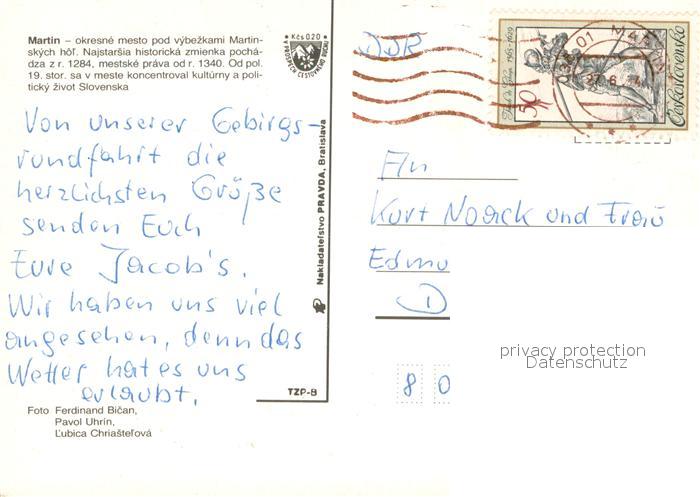 Martin – okresné mesto pod výbežkami Martin-
ských hôľ. Najstaršia historická zmienka pochá-
dza z r. 1284, mestské práva od r. 1340. Od pol.
19. stor. sa v meste koncentroval kultúrny a poli-
tický život Slovenska
Kčs 0,20
Von unserer Gebirgs-
rundfahrt die
herzlichsten Grüße
senden Euch
Eure Jacob's.
Wir haben uns viel
angesehen, denn das
Wetter hat es uns
erlaubt.
Foto Ferdinand Bičan,
Pavol Uhrín,
Ľubica Chriašteľová
Nakladateľstvo PRAVDA, Bratislava
TZP-B
DDR
01 MARTIN
50
Československo
An
Kurt Noack und Frau
8 0
privacy protection
Datenschutz